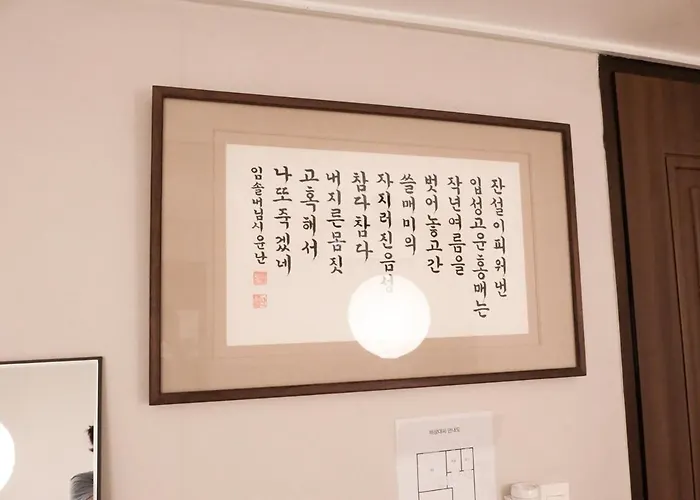 잔설이 피워낸
입성 고운 홍매는
작년 여름을
벗어 놓고 간
쓸매미의
자지러진 음성
참다 참다
내지른 몸짓
고혹해서
나 또 죽겠네
임솔내님 시 운난
비상대피 안내도